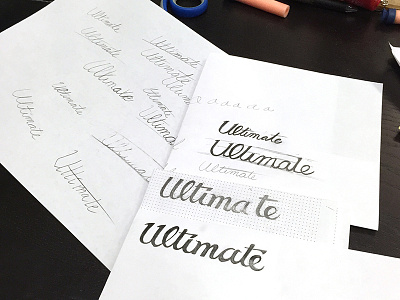 Ultimate
Ultimate
Ultimate
Ultimate
Ultimate
Ultimate
Ultimate
Ultimate
Ultimate
Ultimate
Ultimate
Ultimate
a a a a a
Ultimate
Ultimate
Ultimate
Ultimate
Ultimate